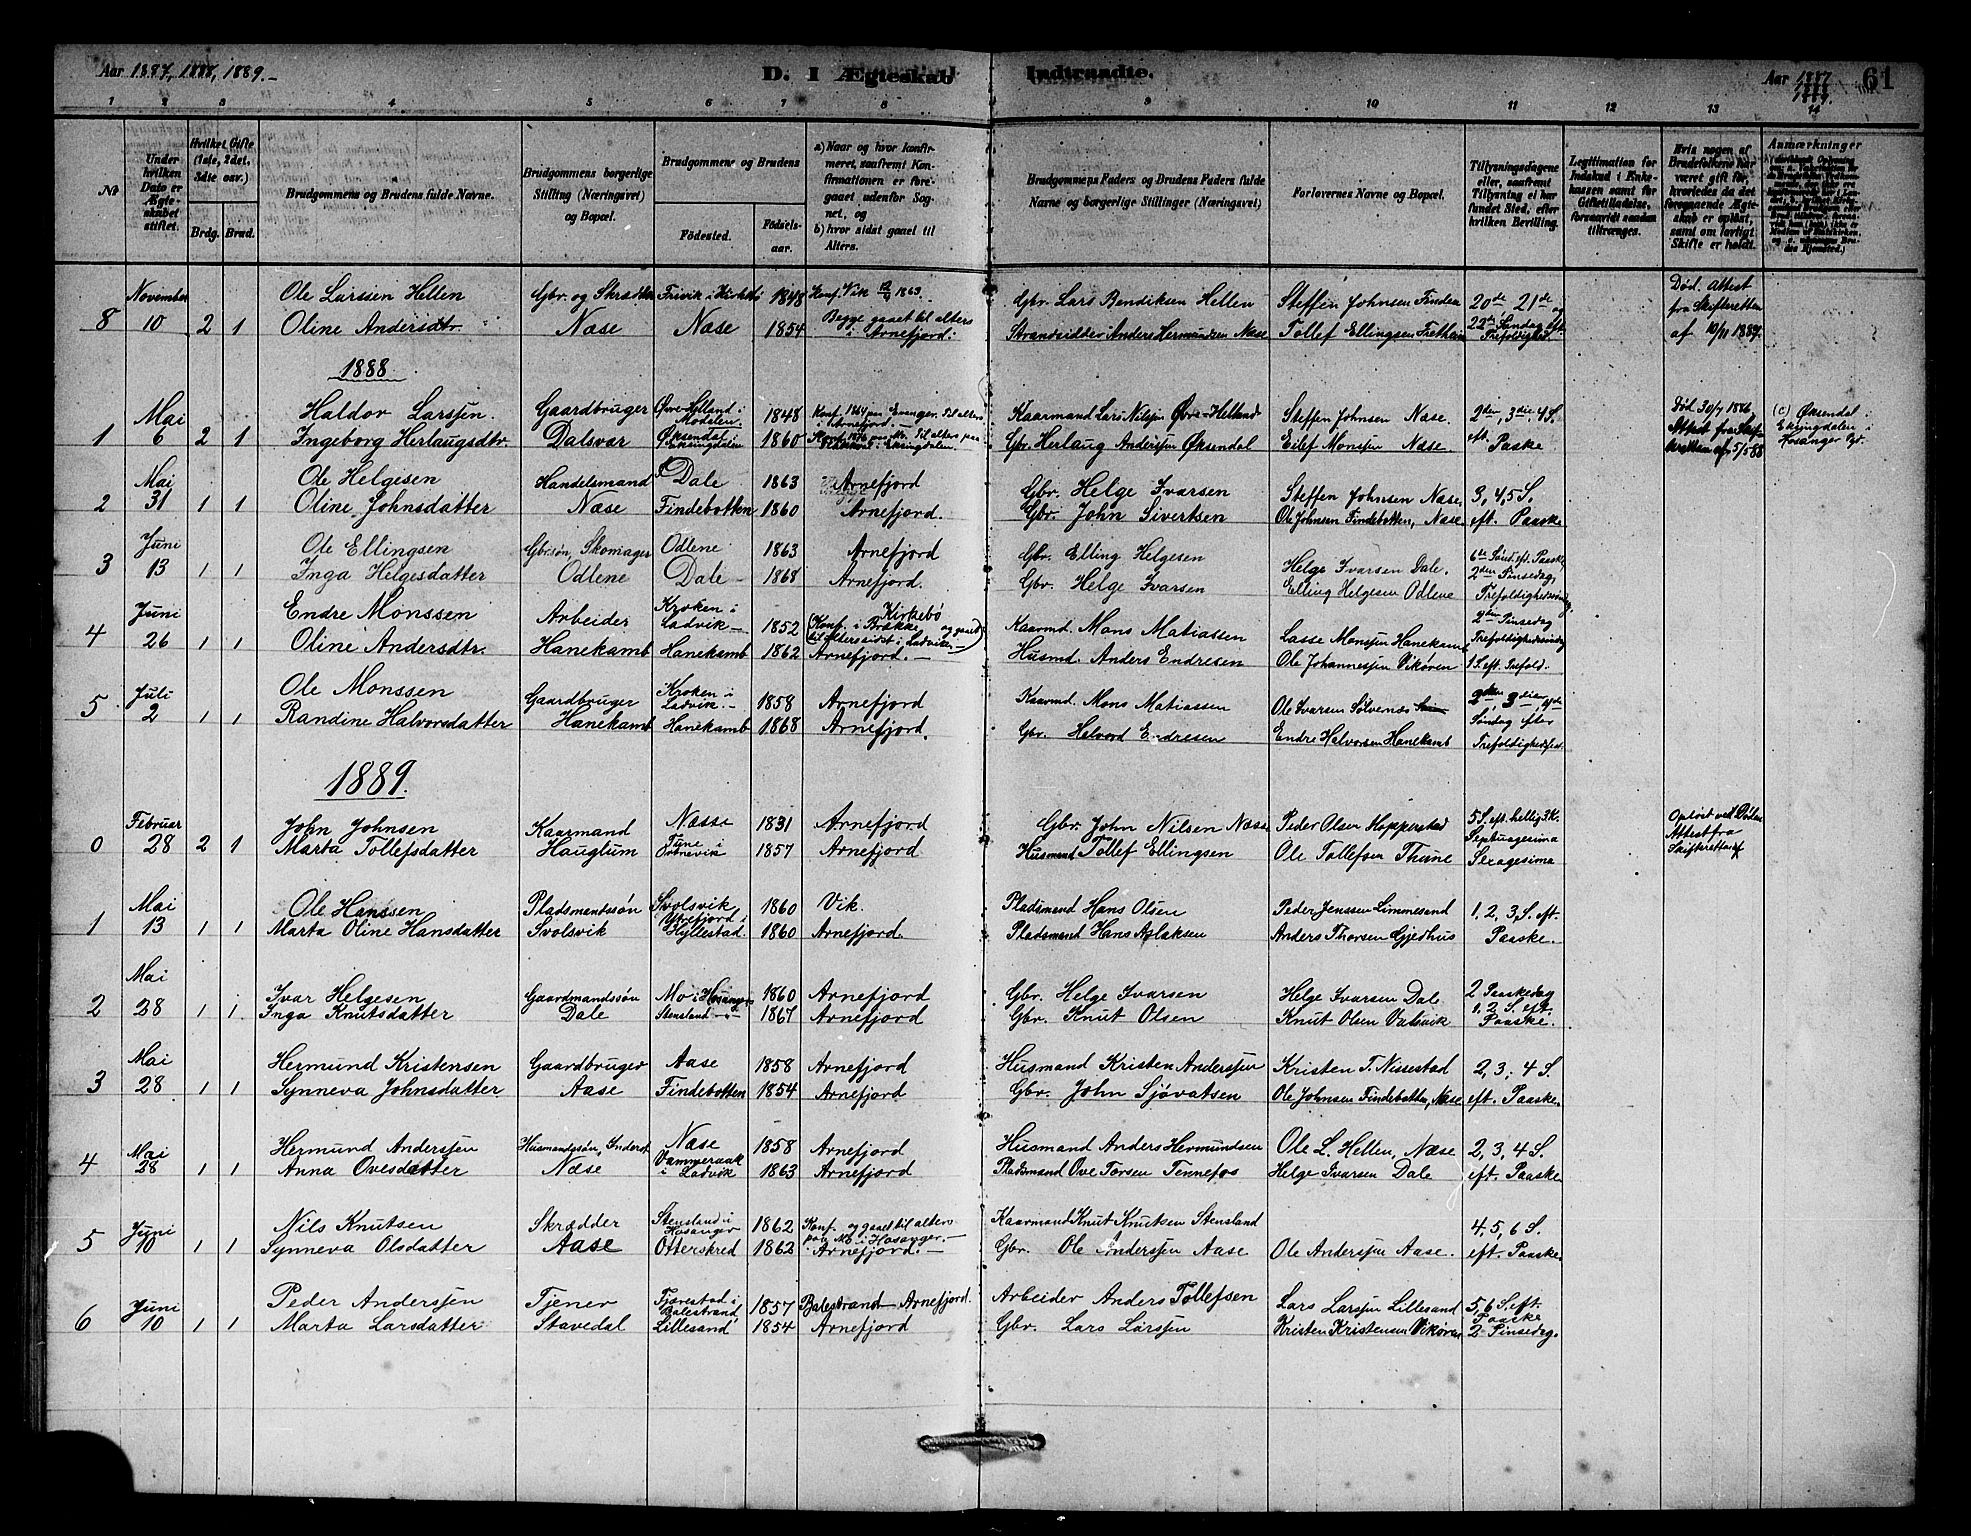 Aar 1887, 1888, 1889.-
D. I Ægteskab Indtraadte.
Aar 1887
1888
1889.
61
1 2 3 4 5 6 7 8 9 10 11 12 13 14
Nr.
Under hvilken Dato er Ægteskabet stiftet.
Hvilket Gifte (1ste, 2det, 3die osv.)
Brdg. Brud.
Brudgommens og Brudens fulde Navne.
Brudgommens borgerlige Stilling (Næringsvei) og Bopæl.
Brudgommens og Brudens
Fødested. Fødselsaar.
a) Naar og hvor konfirmeret, saafremt Konfirmationen er foregaaet udenfor Sognet, og
b) hvor sidst gaaet til Alters.
Brudgommens Faders og Brudens Faders fulde Navne og borgerlige Stillinger (Næringsvei)
Forlovernes Navne og Bopæl.
Tillysningsdagene eller, saafremt Tillysning ei har fundet Sted, efter hvilken Bevilling.
Legitimation for Indskud i Enkekassen samt for Giftetilladelse, forsaavidt saadan tiltrænges.
Hvis nogen af Brudefolkene har været gift før, hvorledes da det foregaaende Ægteskab er opløst, samt om lovligt Skifte er holdt.
Anmærkninger
November Ole Larssen Hellen Gbr. og Skrædder 1848 Konf. Vik 1863. Gbr. Lars Bendiksen Hellen Steffen Johnsen Finden 20de 21de og Død. Attest
8 10 2 1 Oline Andersdtr. Næse Næse 1854 Begge gaaet til alters i Arnefjord. Strandsidder Anders Hermundsen Næse Tollef Ellingsen Fretheim 22de Søndag eft. Trefoldighed. fra Skifteretten af 10/11 1887.
1888.
Mai Haldor Larssen. Gaardbruger Øvre-Helland i Modalen 1848 Konf. 1864 paa Evanger. Til alters i Arnefjord.- Kaarmand Lars Nilsen Øvre-Helland Steffen Johnsen Næse. 2den, 3die, 4 S. Død 30/4 1886, (c) Øksendal i
1 6 2 1 Ingeborg Herlaugsdtr. Dalsvær Øksendal i Eksingdalen 1860 Gbr. Herlaug Anderssen Øksendal Eilef Monssen Næse. eft. Paaske Attest fra Skifteretten af 5/5 88 Eksingdalen i Hosanger
Mai Ole Helgesen Handelsmand Dale 1863 Arnefjord Gbr. Helge Ivarsen Steffen Johnsen Næse, 3, 4, 5 S.
2 31 1 1 Oline Johnsdatter Næse Findebotten 1860 Arnefjord. Gbr. John Sivertsen Ole Johnsen Findebotten, Næse eft. Paaske
Juni Ole Ellingsen Gbr.søn, Skomager Odlene 1863 Arnefjord Gbr. Elling Helgesen Helge Ivarsen Dale. 6te Sønd. eft. Paaske,
3 13 1 1 Inga Helgesdatter Odlene Dale 1868 Arnefjord. Gbr. Helge Ivarsen Elling Helgesen Odlene 2den Pinsedag, Trefoldighedssøndag.
Juni Endre Monssen Arbeider Kroken i Ladvik 1852 (Konf. i Brække Kirkebø og gaaet til Alters sidst i Ladvik.-) Kaarmd. Mons Matiassen Lasse Monssen Hanekamb 2den Pinsedag
4 26 1 1 Oline Andersdtr. Hanekamb Hanekamb 1862 Arnefjord.- Husmd. Anders Endresen Ole Johannessen Vikøren Trefoldighedssøndag 1 S. eft. Trefold.
Juli Ole Monssen Gaardbruger Kroken i Ladvik.- 1858 Arnefjord Kaarmd. Mons Matiassen Ole Ivarsen Sølvenæs 2den, 3die, 4de
5 2 1 1 Randine Halvorsdatter Hanekamb Hanekamb 1868 Arnefjord. Gbr. Halvord Endresen Endre Halvorsen Hanekamb Søndag efter Trefoldighedsfest.
1889.
Februar John Johnsen Kaarmand Næsse 1831 Arnefjord Gbr. John Nilsen Næse Peder Olsen Hopperstad 5 S. eft. hellig 3 K. Opløst ved Døden
0 28 2 1 Marta Tollefsdatter Hauglum Tune i Ortnevik 1857 Arnefjord Husmand Tollef Ellingsen Ole Tollefsen Thune Septuagesima Sexagesima Attest fra Skifteretten
Mai Ole Hanssen Pladsmandssøn Svolsvik 1860 Vik. Pladsmand Hans Olsen Peder Jenssen Limmesand 1, 2, 3, S. eft.
1 13 1 1 Marta Oline Hansdatter Svolsvik Ytrefjord i Hyllestad. 1860 Arnefjord. Pladsmand Hans Aslaksen Anders Thorsen Gjedhus Paaske.
Mai Ivar Helgesen Gaardmandssøn Mo i Hosanger 1860 Arnefjord Gbr. Helge Ivarsen Helge Ivarsen Dale 2 Paaskedag
2 28 1 1 Inga Knutsdatter Dale Stensland 1867 Arnefjord Gbr. Knut Olsen Knut Olsen Valsvik 1, 2 S. eft. Paaske.
Mai Hermund Kristensen Gaardbruger Aase 1858 Arnefjord Husmand Kristen Anderssen Kristen T. Nissestad 2, 3, 4 S.
3 28 1 1 Synneva Johnsdatter Aase Findebotten 1854 Arnefjord Gbr. John Sjøvatsen Ole Johnsen Findebotten, Næse eft. Paaske.
Mai Hermund Anderssen Husmandssøn, Inderst Næse 1858 Arnefjord Husmand Anders Hermundsen Ole L. Hellen, Næse 2, 3, 4 S.
4 28 1 1 Anna Ovesdatter Næse Vammeraak i Ladvik 1863 Arnefjord Pladsmand Ove Torsen Tennefos Helge Ivarsen Dale eft. Paaske
Juni Nils Knutsen Skrædder Stensland i Hosanger 1862 Konf. og gaaet til alters paa Mo i Hosanger.- Kaarmand Knut Knutsen Stensland 4, 5, 6 S.
5 10 1 1 Synneva Olsdatter Aase Otterskred 1862 Arnefjord.- Gbr. Ole Anderssen Aase Ole Anderssen Aase. eft. Paaske
Juni Peder Anderssen Tjener Tjærestad i Balestrand 1857 Balestrand Arnefjord. Arbeider Anders Tollefsen Lars Larssen Lillesand 5, 6 S. eft. Paaske
6 10 1 1 Marta Larsdatter Stavedal Lillesand 1854 Arnefjord Gbr. Lars Larssen Kristen Kristensen Vikøren 2 Pinsedag.